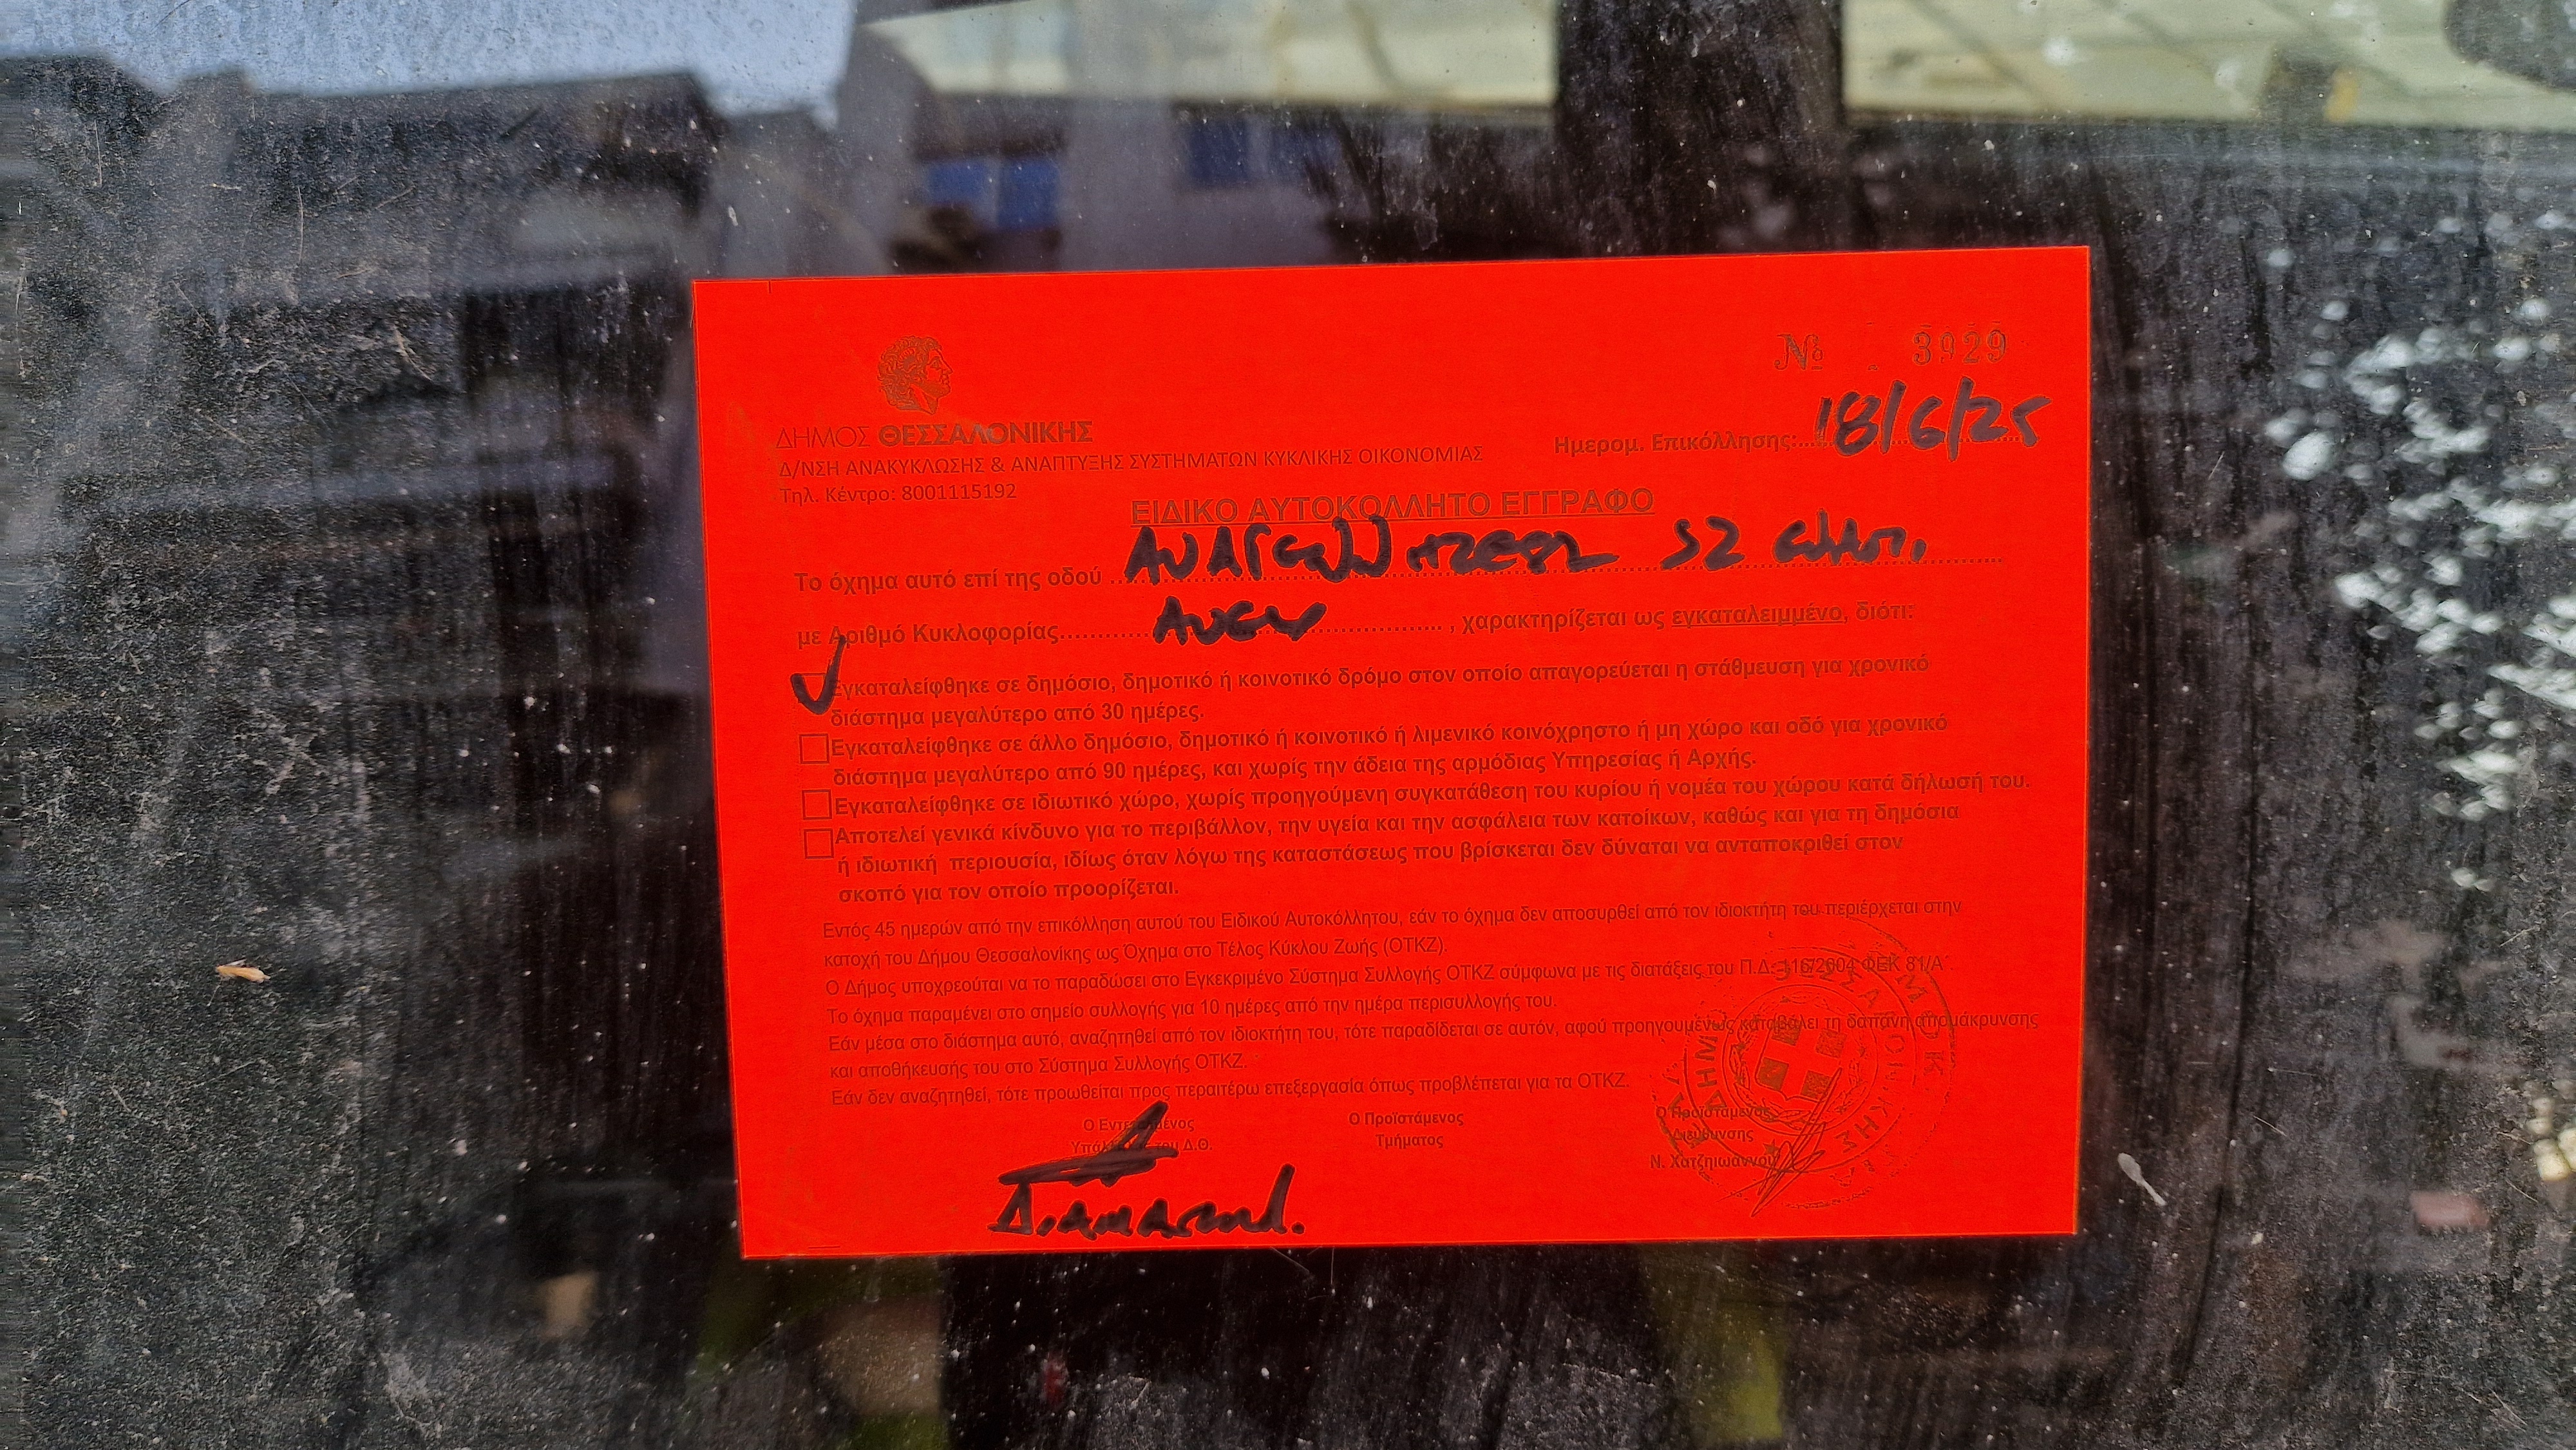 № 3929
ΔΗΜΟΣ ΘΕΣΣΑΛΟΝΙΚΗΣ
Ημερομ. Επικόλλησης: 18/6/25
Δ/ΝΣΗ ΑΝΑΚΥΚΛΩΣΗΣ & ΑΝΑΠΤΥΞΗΣ ΣΥΣΤΗΜΑΤΩΝ ΚΥΚΛΙΚΗΣ ΟΙΚΟΝΟΜΙΑΣ
Τηλ. Κέντρο: 8001115192
ΕΙΔΙΚΟ ΑΥΤΟΚΟΛΛΗΤΟ ΕΓΓΡΑΦΟ
Το όχημα αυτό επί της οδού
με Αριθμό Κυκλοφορίας ΑΝΕΥ , χαρακτηρίζεται ως εγκαταλειμμένο, διότι:
Εγκαταλείφθηκε σε δημόσιο, δημοτικό ή κοινοτικό δρόμο στον οποίο απαγορεύεται η στάθμευση για χρονικό
διάστημα μεγαλύτερο από 30 ημέρες.
Εγκαταλείφθηκε σε άλλο δημόσιο, δημοτικό ή κοινοτικό ή λιμενικό κοινόχρηστο ή μη χώρο και οδό για χρονικό
διάστημα μεγαλύτερο από 90 ημέρες, και χωρίς την άδεια της αρμόδιας Υπηρεσίας ή Αρχής.
Εγκαταλείφθηκε σε ιδιωτικό χώρο, χωρίς προηγούμενη συγκατάθεση του κυρίου ή νομέα του χώρου κατά δήλωσή του.
Αποτελεί γενικά κίνδυνο για το περιβάλλον, την υγεία και την ασφάλεια των κατοίκων, καθώς και για τη δημόσια
ή ιδιωτική περιουσία, ιδίως όταν λόγω της καταστάσεως που βρίσκεται δεν δύναται να ανταποκριθεί στον
σκοπό για τον οποίο προορίζεται.
Εντός 45 ημερών από την επικόλληση αυτού του Ειδικού Αυτοκόλλητου, εάν το όχημα δεν αποσυρθεί από τον ιδιοκτήτη του περιέρχεται στην
κατοχή του Δήμου Θεσσαλονίκης ως Όχημα στο Τέλος Κύκλου Ζωής (ΟΤΚΖ).
Ο Δήμος υποχρεούται να το παραδώσει στο Εγκεκριμένο Σύστημα Συλλογής ΟΤΚΖ σύμφωνα με τις διατάξεις του Π.Δ. 116/2004 ΦΕΚ 81/Α΄.
Το όχημα παραμένει στο σημείο συλλογής για 10 ημέρες από την ημέρα περισυλλογής του.
Εάν μέσα στο διάστημα αυτό, αναζητηθεί από τον ιδιοκτήτη του, τότε παραδίδεται σε αυτόν, αφού προηγουμένως καταβάλει τη δαπάνη απομάκρυνσης
και αποθήκευσής του στο Σύστημα Συλλογής ΟΤΚΖ.
Εάν δεν αναζητηθεί, τότε προωθείται προς περαιτέρω επεξεργασία όπως προβλέπεται για τα ΟΤΚΖ.
Ο Εντεταλμένος
Υπάλληλος του Δ.Θ.
Ο Προϊστάμενος
Τμήματος
Ο Προϊστάμενος
Διεύθυνσης
Ν. Χατζηιωάννου
ΔΗΜΟΣ ΘΕΣΣΑΛΟΝΙΚΗΣ